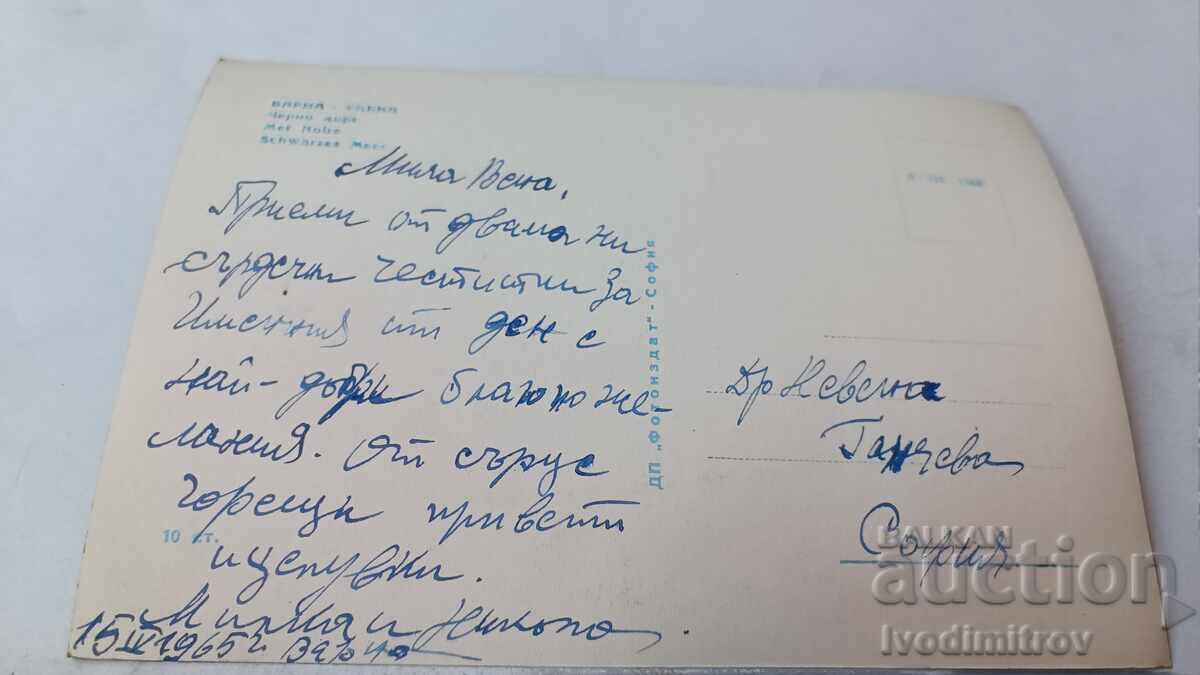 ВАРНА -
Черно море
Mer Noire
Schwarzes Meer
Мила Вена,
Приеми от двама ни
сърдечни честитки за
Именния ти ден с
най-добри благопоже-
лания. От сърце
горещи привети
и целувки.
и Никола
15 1965 г. Варна
10 ст.
ДП „Фотоиздат“ - София
Др Невена
Ганчева
София
BALKAN
auction
Ivodimitrov